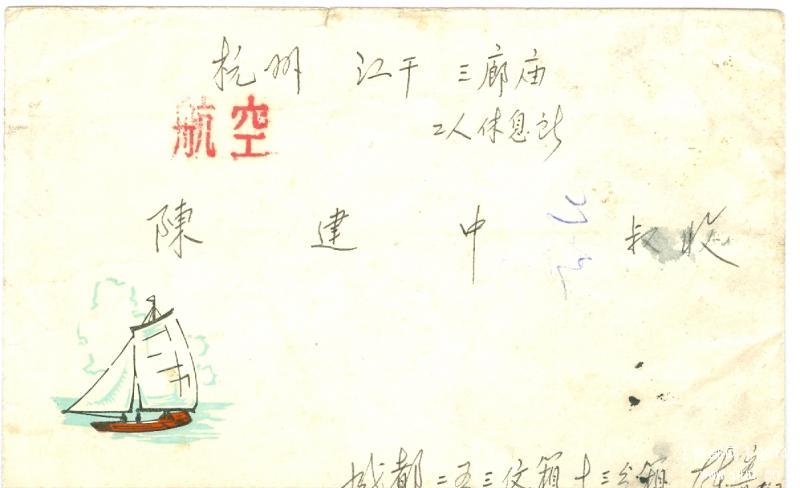 杭州 江干 三廊庙
工人休息站
航空
陳 建 中 叔收
成都二五三仗箱十三分箱